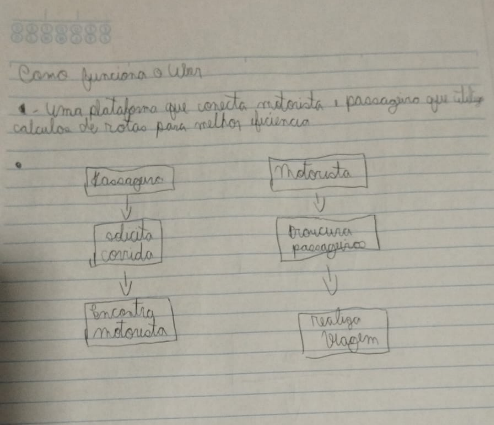 Como funciona o Uber
- Uma plataforma que conecta motorista e passageiro que utiliza
calculos de rotas para melhor eficiencia
Passageiro
solicita
corrida
Encontra
motorista
Motorista
Procura
passageiros
realiza
viagem